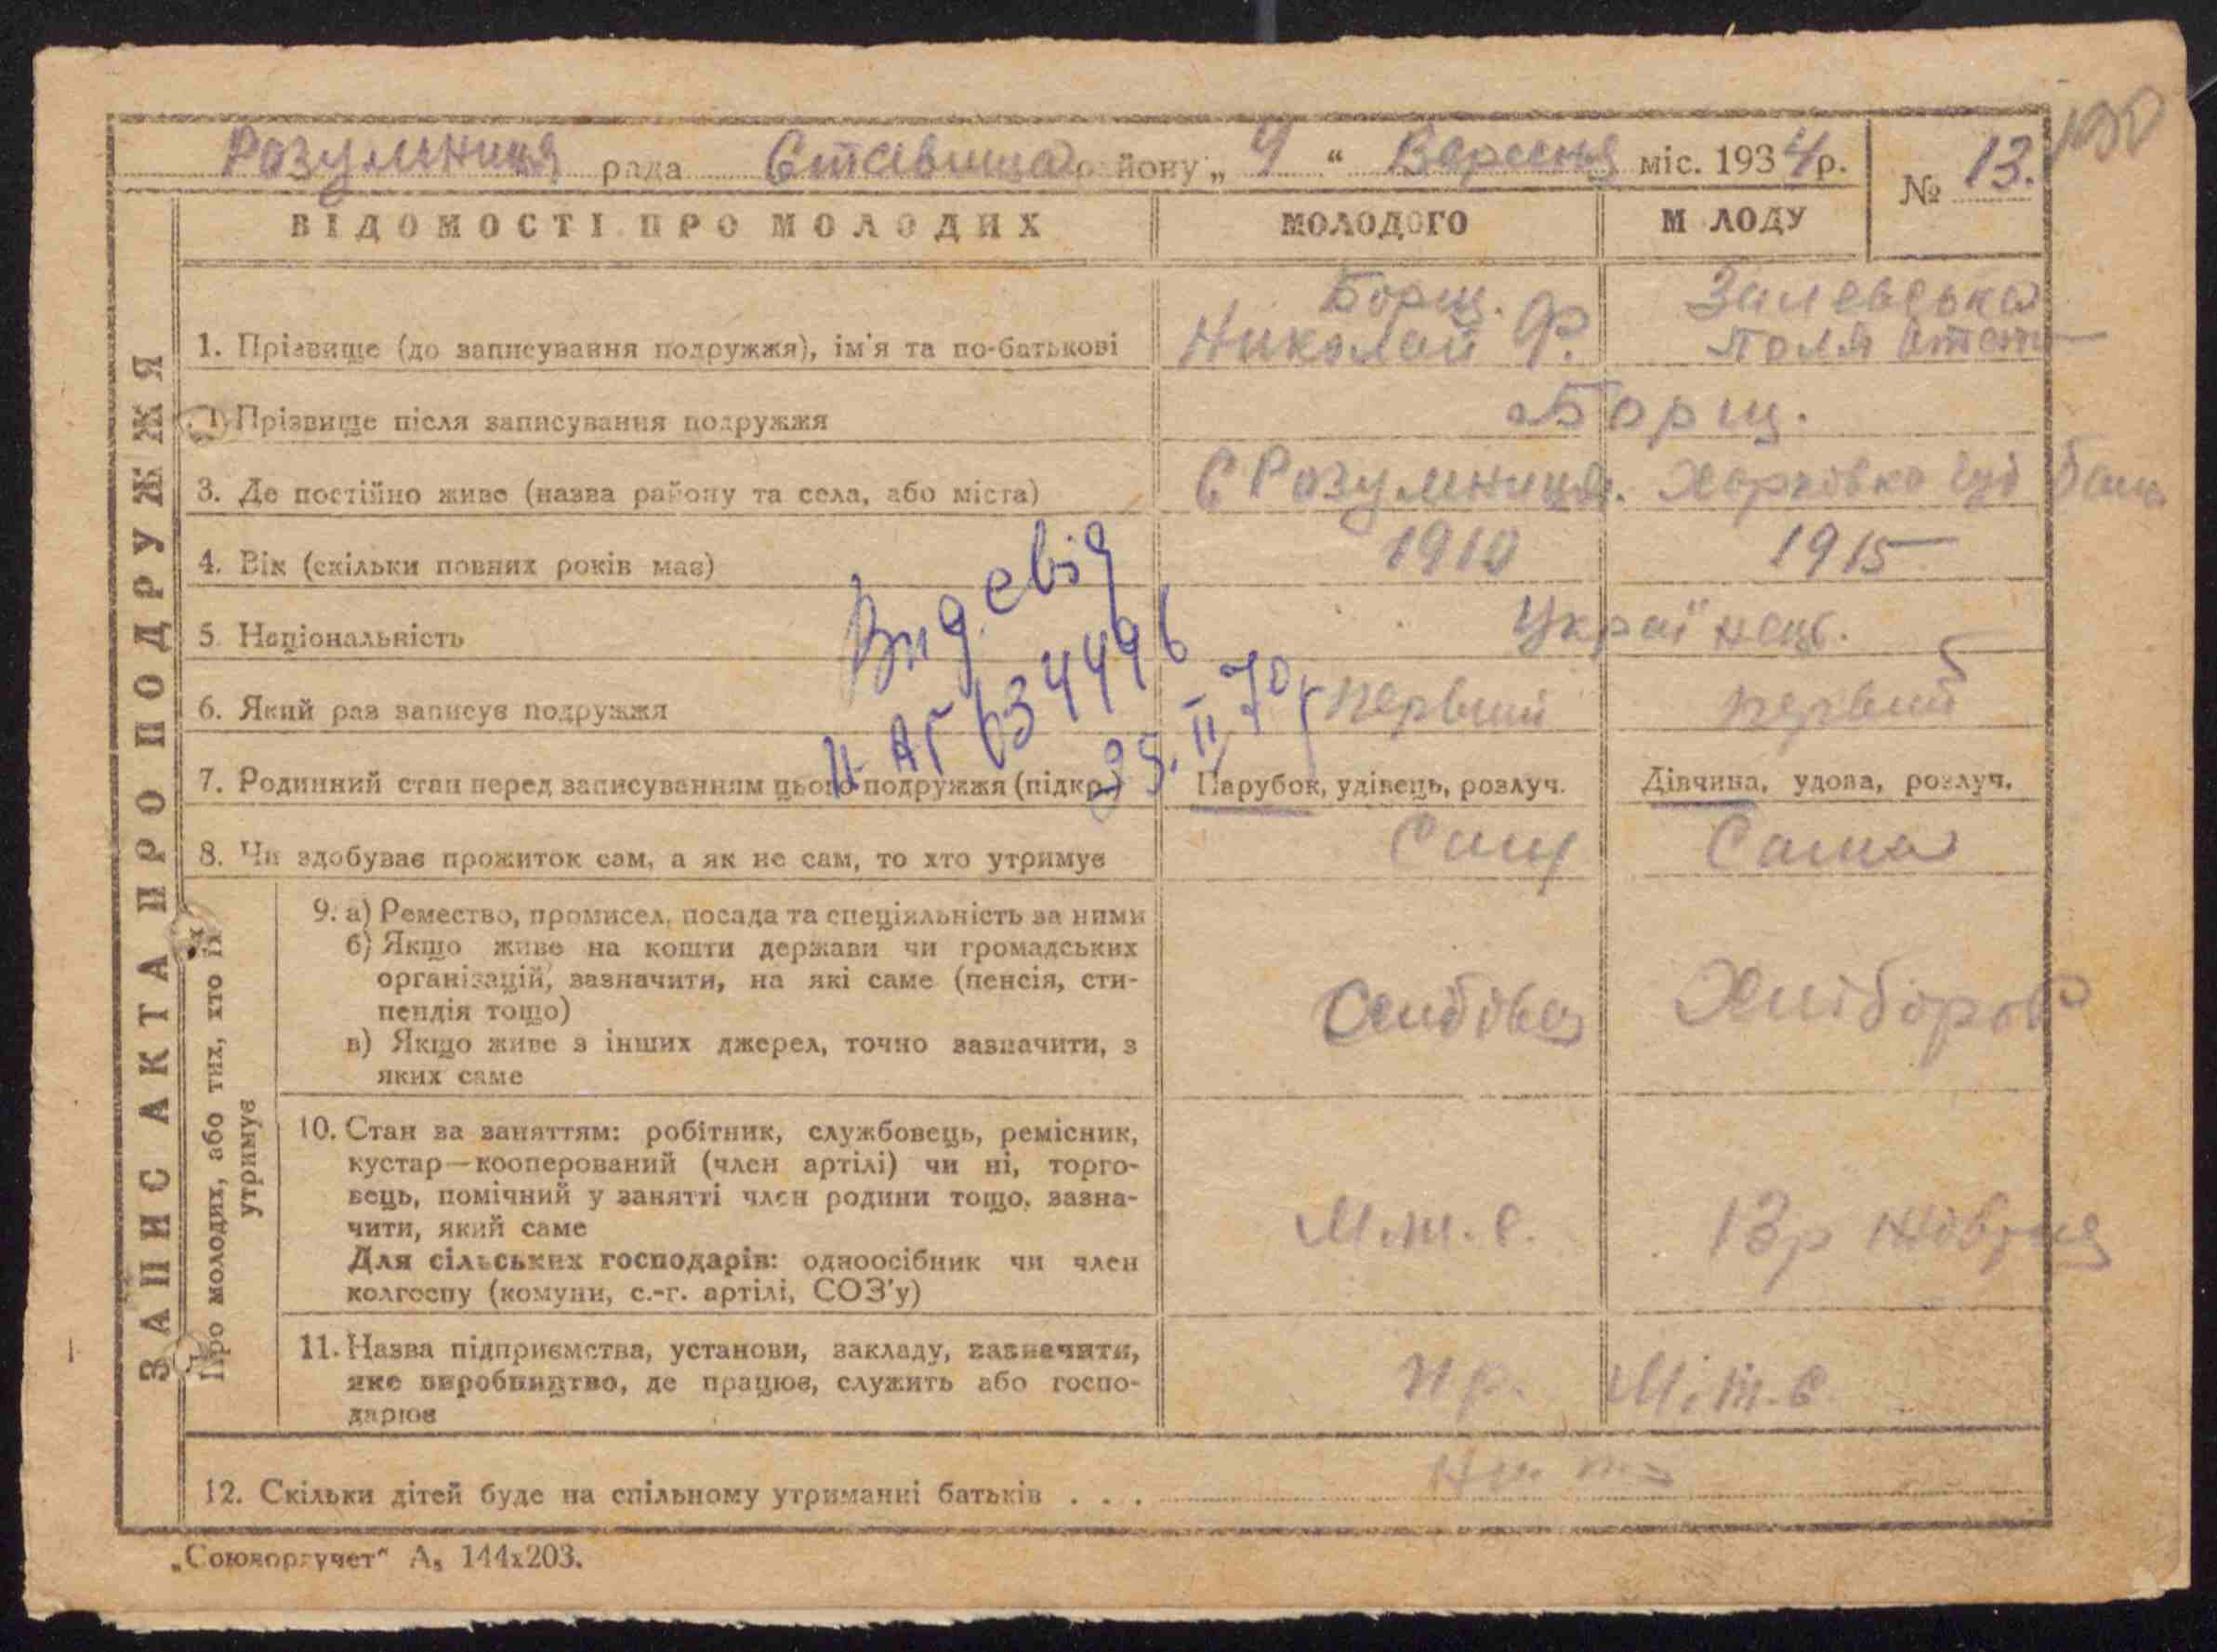 Розумниця рада Ставища району „ 4 “ Вересня міс. 1934 р.
№ 13.
ЗАПИС АКТА ПРО ПОДРУЖЖЯ
ВІДОМОСТІ ПРО МОЛОДИХ МОЛОДОГО М ЛОДУ
1. Прізвище (до записування подружжя), ім'я та по-батькові Борщ. Николай Ф. Залевська Поля
Прізвище після записування подружжя Борщ.
3. Де постійно живе (назва району та села, або міста) С Розумниця. Харківка
4. Вік (скільки повних років має) 1910 1915
5. Національність Українець.
6. Який раз записує подружжя первий первий
7. Родинний стан перед записуванням цього подружжя (підкр.) Парубок, удівець, розлуч. Дівчина, удова, розлуч.
Вид. свід
II-АГ 634496
25.II.70р
8. Чи здобуває прожиток сам, а як не сам, то хто утримує Сам Сама
Про молодих, або тих, хто їх утримує
9. а) Ремество, промисел, посада та спеціяльність за ними
б) Якщо живе на кошти держави чи громадських
організацій, зазначити, на які саме (пенсія, сти-
пендія тощо)
в) Якщо живе з інших джерел, точно зазначити, з
яких саме
Хлібороб
10. Стан за заняттям: робітник, службовець, ремісник,
кустар—кооперований (член артілі) чи ні, торго-
вець, помічний у занятті член родини тощо, зазна-
чити, який саме
Для сільських господарів: одноосібник чи член
колгоспу (комуни, с.-г. артілі, СОЗ'у)
М.т.с. 13р Жовтня
11. Назва підприємства, установи, закладу, зазначити,
яке виробництво, де працює, служить або госпо-
дарює
М.т.с
12. Скільки дітей буде на спільному утриманні батьків . . .
„Союзоргучет“ А₅ 144х203.